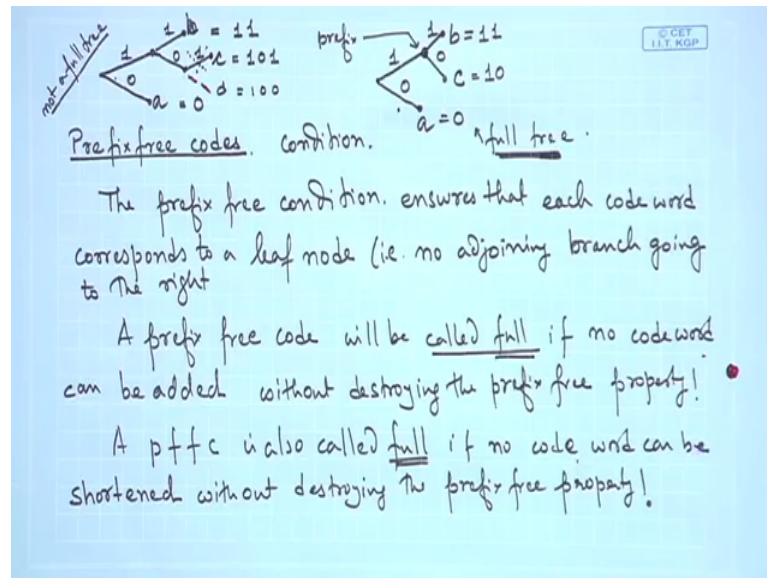 not a full tree
1 b = 11
1 0 1 c = 101
0 d = 100
a = 0
prefix 1 b = 11
1 0
0 c = 10
a = 0
full tree.
© CET
I.I.T. KGP
Prefix free codes. condition.
The prefix free condition. ensures that each code word
corresponds to a leaf node (i.e. no adjoining branch going
to the right
A prefix free code will be called full if no codeword
can be added without destroying the prefix free property!
A pffc is also called full if no code word can be
shortened without destroying the prefix free property!